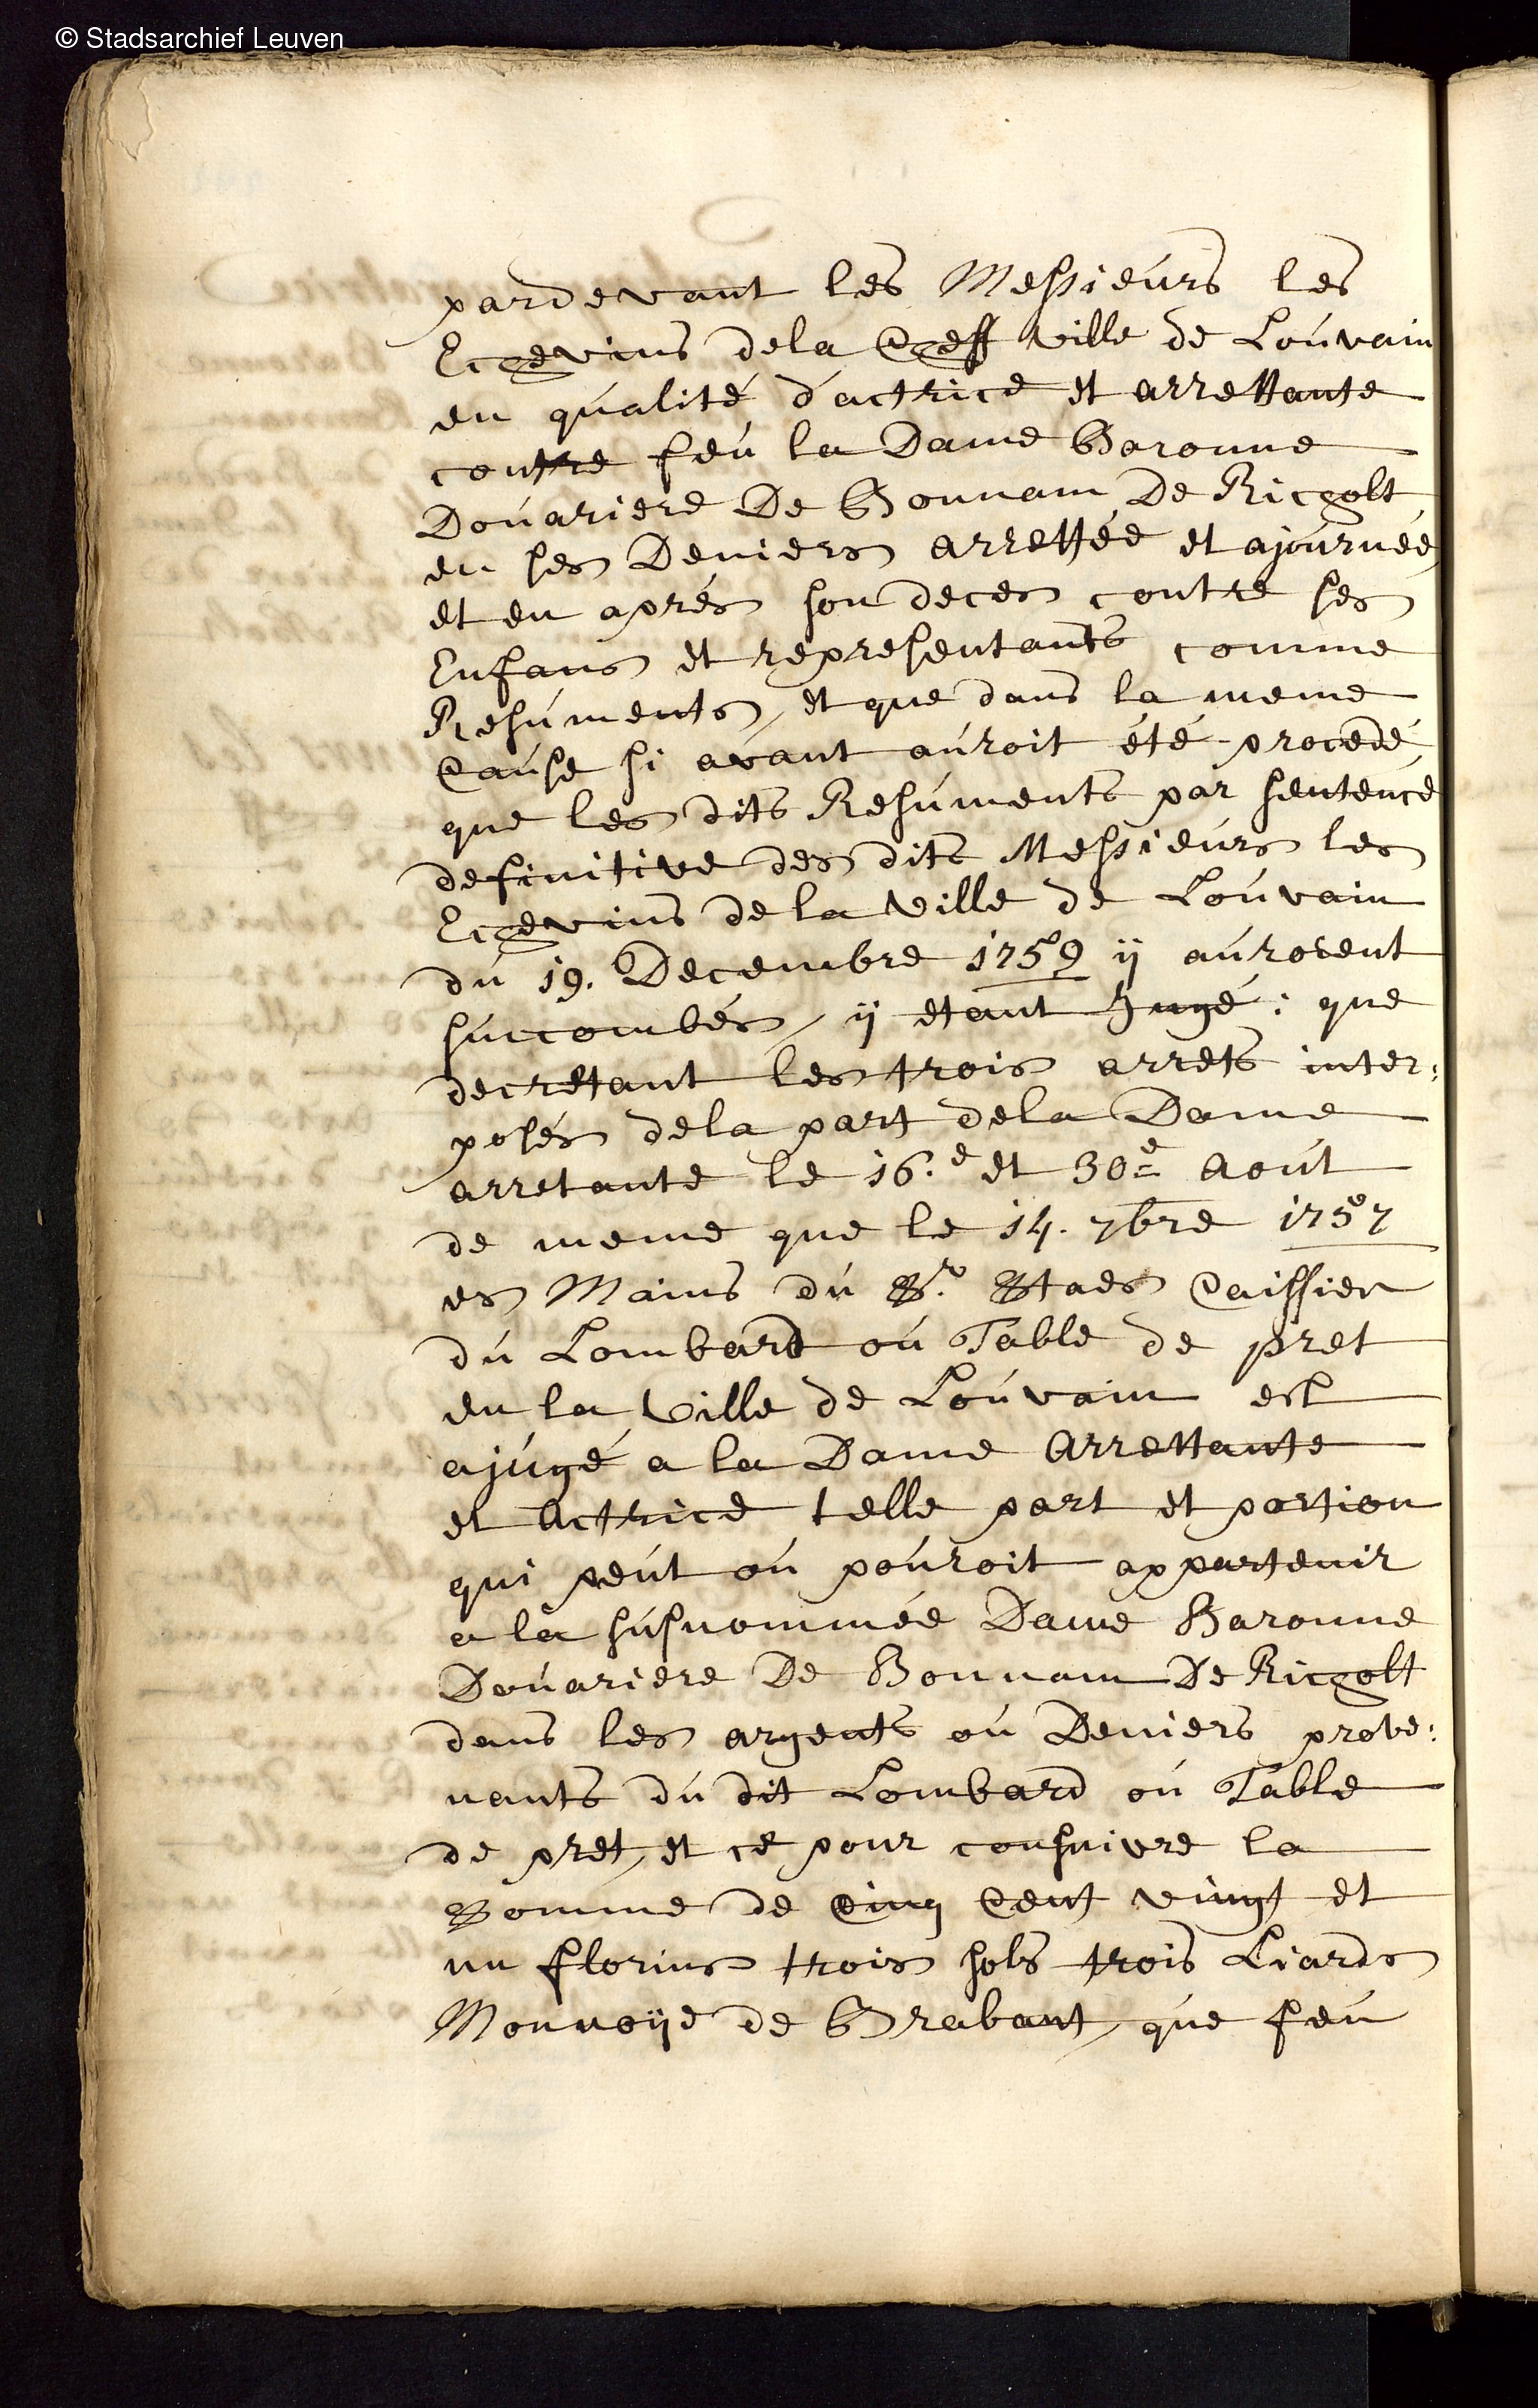 © Stadsarchief Leuven
pardevant les Messieurs les
Echevins dela Cheff ville de Louvain
en qualité d'actrice et arrettante
contre feu la Dame Baronne
Douariere De Bounam De Richolt
en ses Deniers arrettée et ajournée
et en aprés son deces contre ses
Enfans et representants comme
Resuments, et que dans la meme
Cause si avant auroit été procedé,
que les dits Resuments par sentence
definitive des dits Messieurs les
Echevins de la ville de Louvain
du 19. Decembre 1759 ÿ auroient
succombés, ÿ etant Jugé: que
decretant les trois arrets inter:
posés dela part dela Dame
arretante le 16.e et 30e Aout
de meme que le 14. 7bre 1757
es Mains du Sr. Staes Caissier
du Lombard ou Table de pret
en la Ville de Louvain est
ajugé a la Dame Arrettante
et Actrice telle part et portion
qui peut ou pouroit appartenir
a la susnommée Dame Baronne
Douariere De Bounam De Richolt
dans les argents ou Deniers prove:
nants du dit Lombard ou Table
de pret, et ce pour consuivre la
Somme de Cinq Cent vingt et
un florins trois sols trois Liards
Monnoÿe de Brabant, que feu